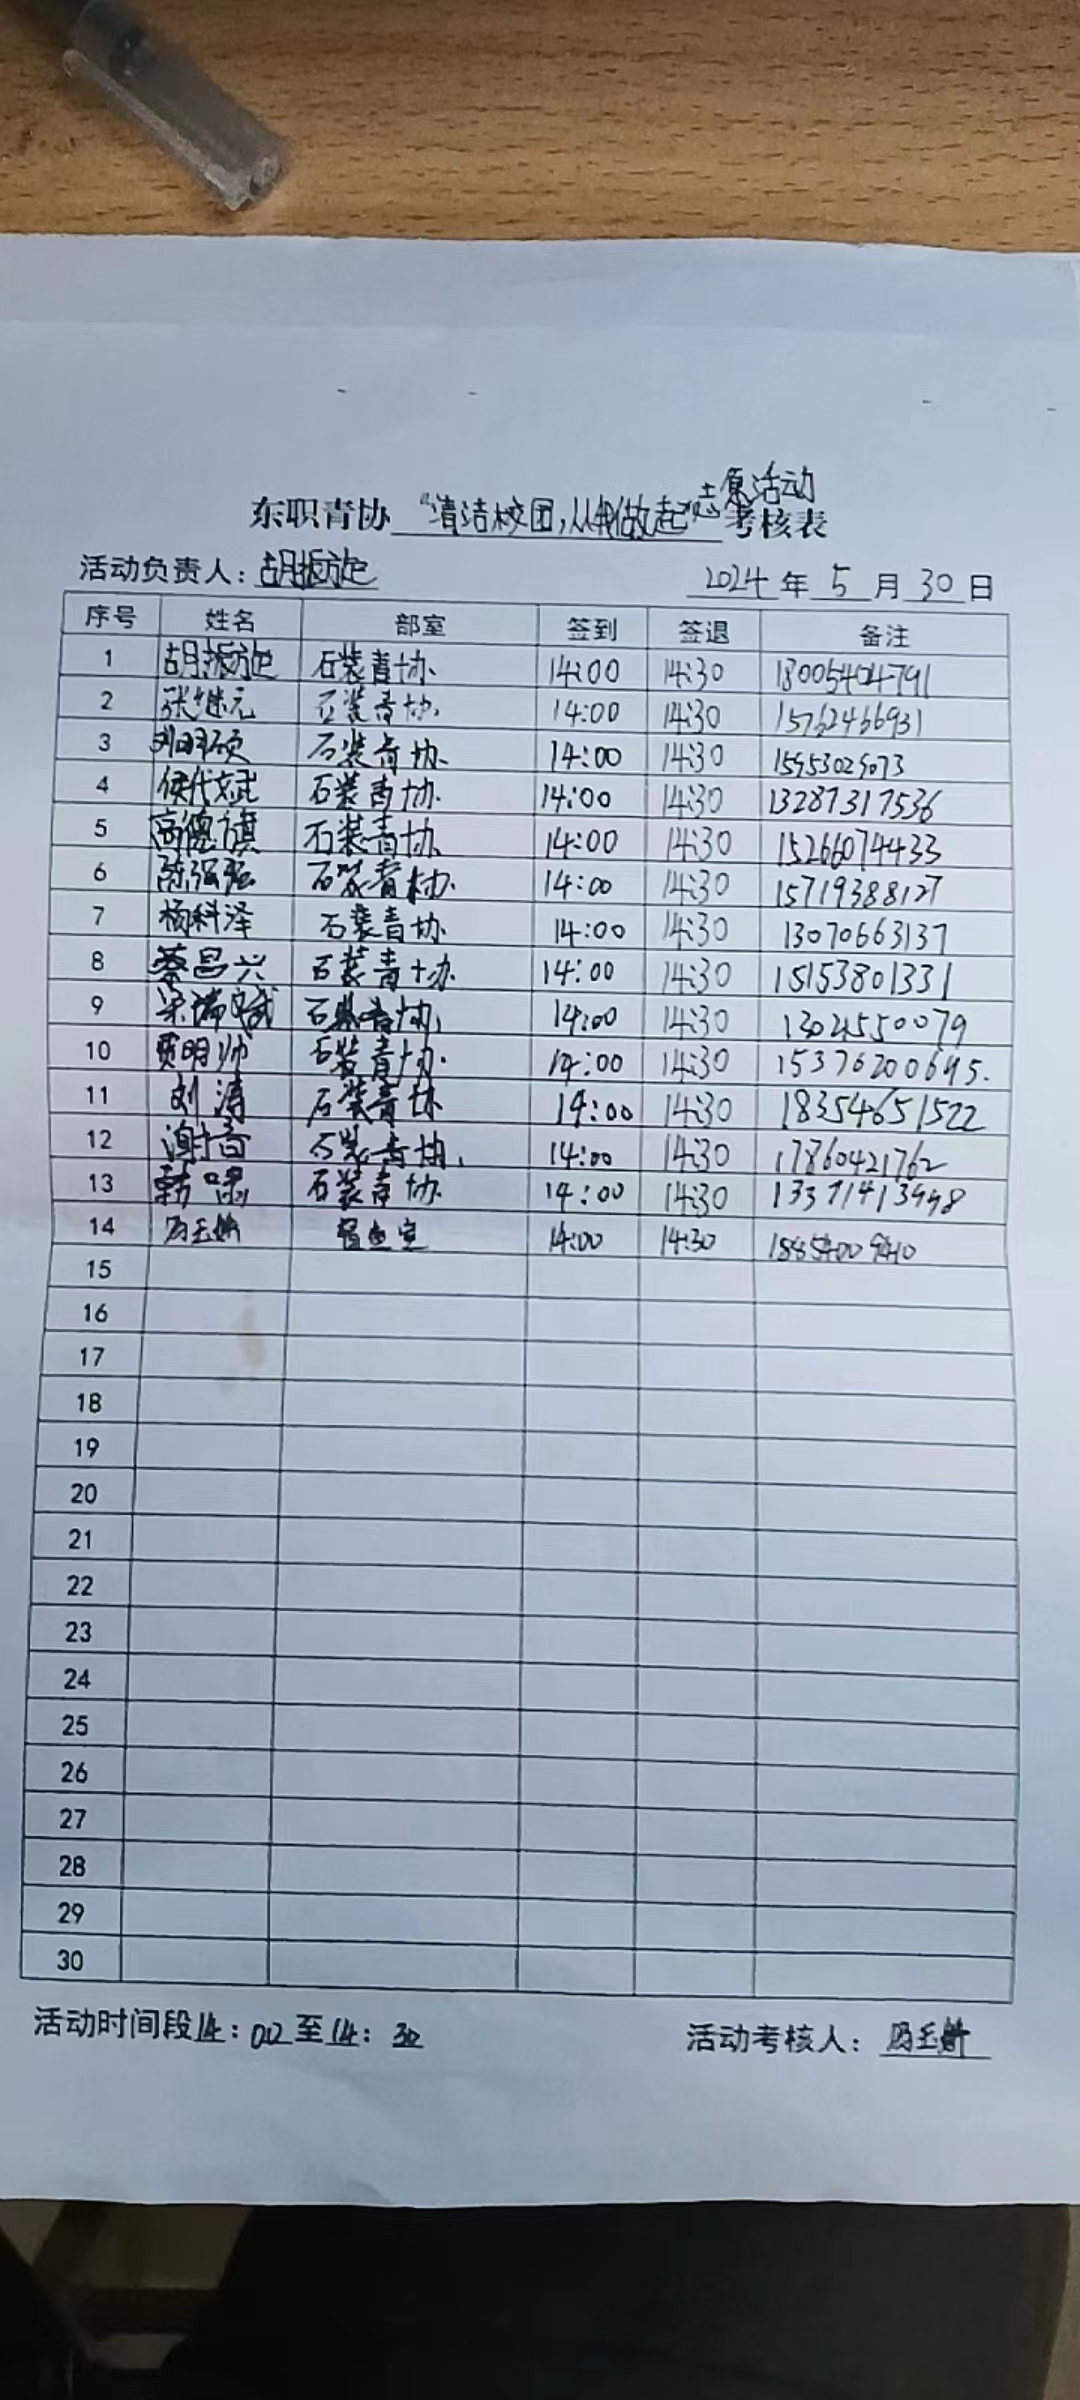 志愿活动
东职青协 "清洁校园,从我做起" 考核表
活动负责人: 胡振
2024 年 5 月 30 日
序号 姓名 部室 签到 签退 备注
1 胡振 石装青协 14:00 14:30 18005404791
2 张继元 石装青协 14:00 14:30 15762466931
3 刘明硕 石装青协 14:00 14:30 15953029073
4 侯代斌 石装青协 14:00 14:30 13287317536
5 高德旗 石装青协 14:00 14:30 15266074433
6 陈强强 石装青协 14:00 14:30 15719388127
7 杨科泽 石装青协 14:00 14:30 13070663137
8 蔡昌兴 石装青协 14:00 14:30 15153801331
9 梁瑞斌 石装青协 14:00 14:30 13024550079
10 贾明帅 石装青协 14:00 14:30 15376200695.
11 刘涛 石装青协 14:00 14:30 18354651522
12 石装青协 14:00 14:30 17860421762
13 韩啸 石装青协 14:00 14:30
14 冯玉 14:00 14:30
15
16
17
18
19
20
21
22
23
24
25
26
27
28
29
30
活动时间段14:00至14:30 活动考核人: 冯玉